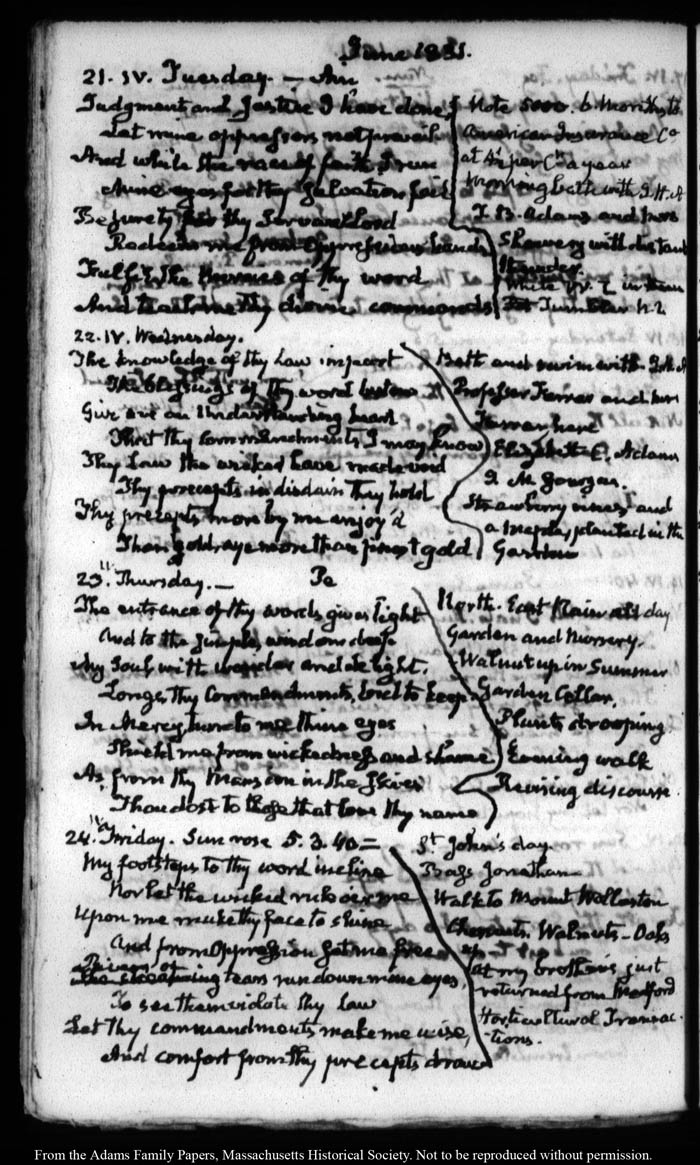 June 1831.
21. IV. Tuesday. — Ain
Judgment and Justice I have done,
Let mine oppressors not prevail
And while the race of faith I run
Mine eyes for thy Salvation fail
Be surety for thy Servant Lord
Redeem me from Oppression's hands
Fulfil the promise of thy word
And teach me thy divine commands
Note 5000. 6 Months to
American Insurance Co
at 4½ per Ct a year
Morning bath with I. H. A
T. B. Adams and sons
Showery with distant
thunder.
White
22. IV. Wednesday.
The knowledge of thy Law impart
The blessings of thy word bestow
Give me an Understanding heart
That thy Commandments I may know
Thy Law the wicked have made void
Thy precepts in disdain they hold
Thy precepts more by me enjoy'd
Than gold, aye more than finest gold
Bath and swim with
Professor Farrar and Mrs
Farrar here
Elizabeth C. Adams
I. M. Gourgas.
Strawberry vines and
a planted in the
Garden
23. Thursday. — Pe
The entrance of thy words gives light
And to the simple, wisdom deep
My Soul with wonder and delight,
Longs thy Commandments, Lord to keep
In Mercy turn to me thine eyes
Shield me from wickedness and shame
As from thy Mansion in the Skies
Thou dost to those that love thy name
North-East Rain all day
Garden and Nursery.
Walnut up in Summer
Garden Cellar.
Plants drooping
Evening walk
Revising discourse
24. Friday. Sun rose 5. 3. 40 =
My footsteps to thy word incline
Nor let the wicked rule o'er me
Upon me make thy face to shine
And from Oppression set me free
Rivers of
The streaming tears run down mine eyes,
To see them violate thy Law
Let thy commandments make me wise,
And comfort from thy precepts draw
St John's day
Bass Jonathan
Walk to Mount Wollaston
Chesnuts. Walnuts - Oaks
up
at my brother's just
returned from Medford
Horticultural Transac-
tions.
From the Adams Family Papers, Massachusetts Historical Society. Not to be reproduced without permission.